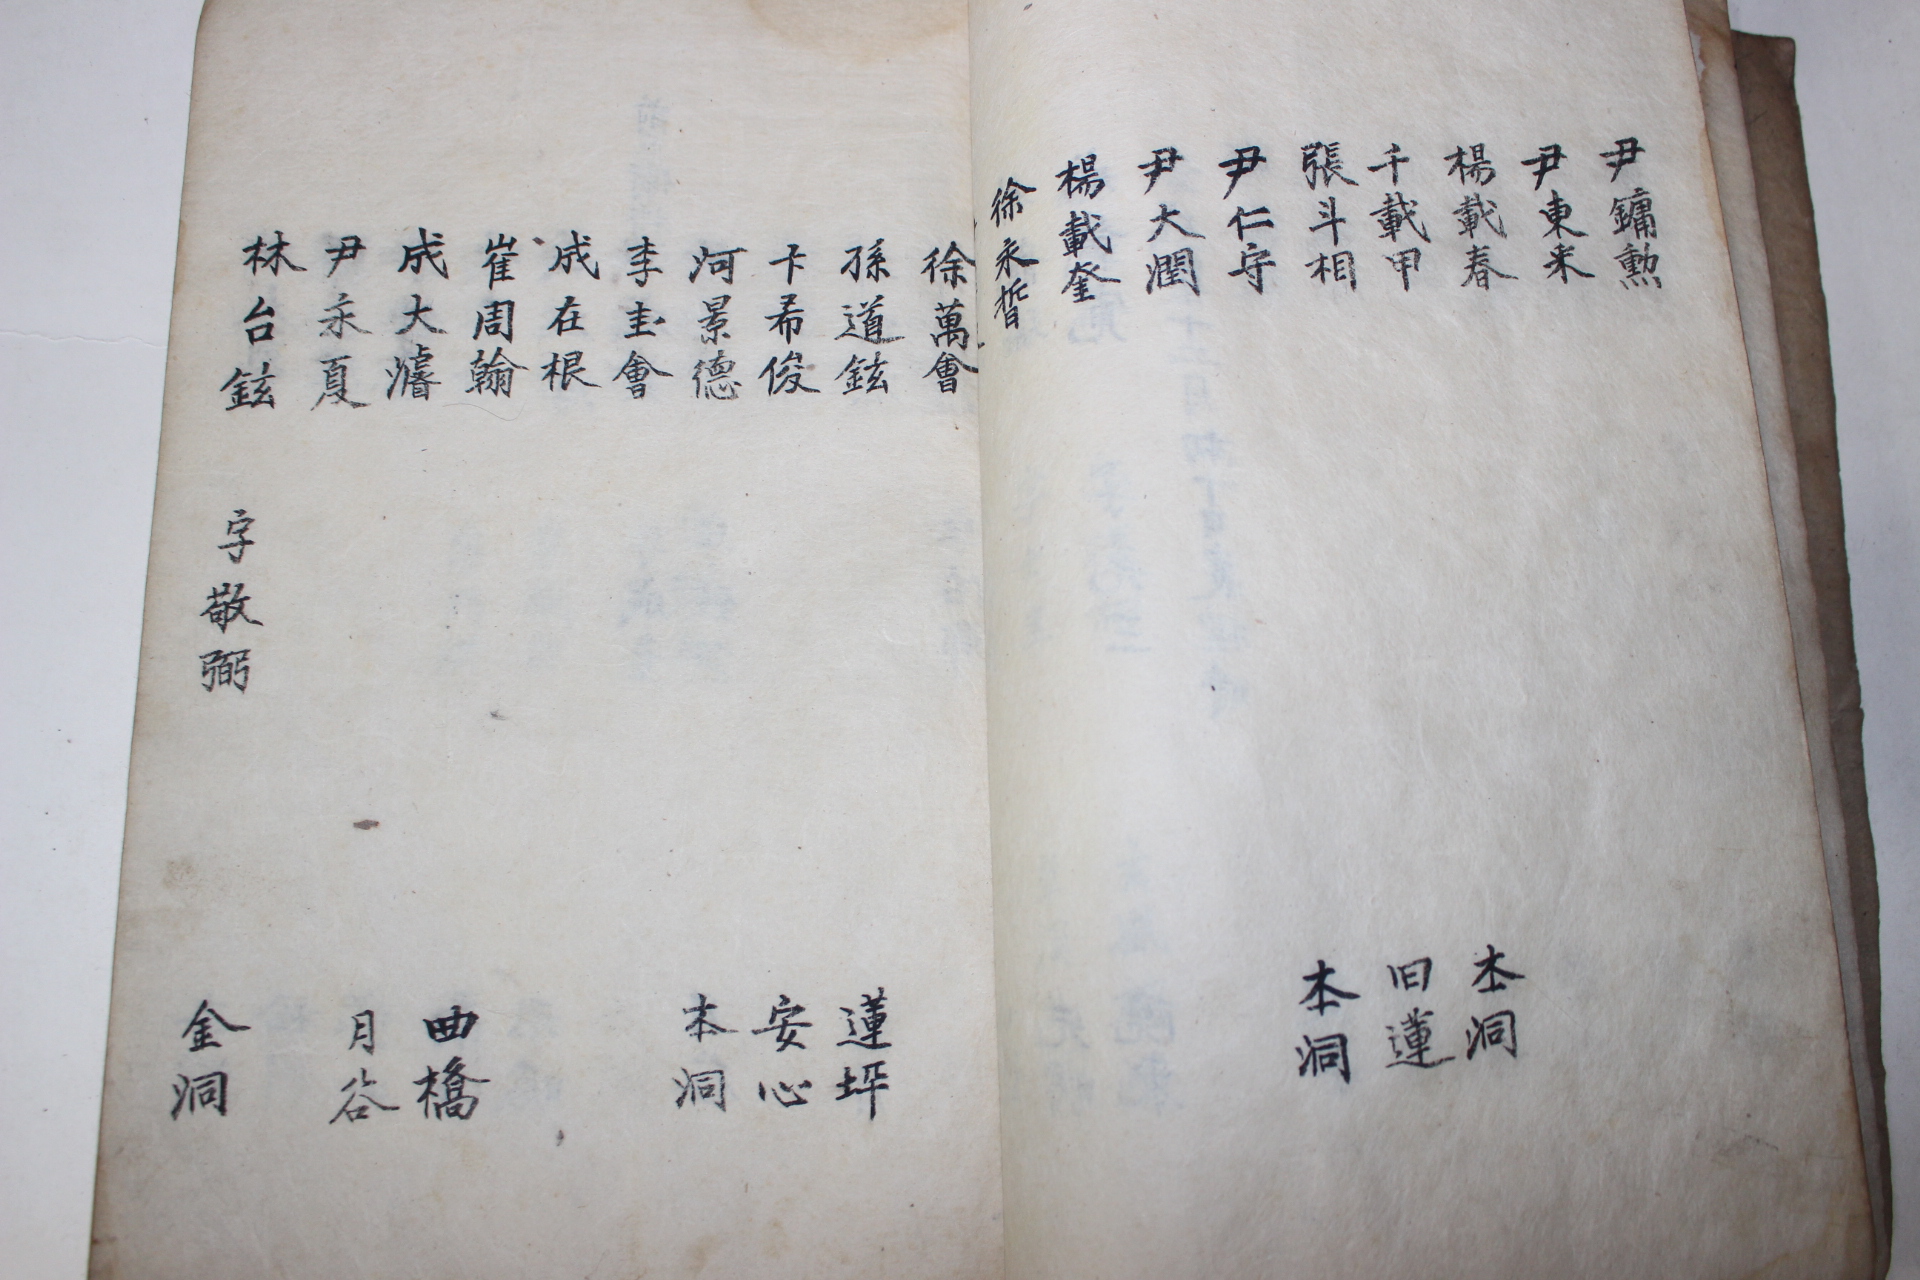 尹鏞勲
尹東来
楊載春 本洞
千載甲 旧蓮
張斗相 本洞
尹仁守
尹大潤
楊載奎
徐永晳
徐萬會
孫道鉉 蓮坪
卞希俊 安心
河景德 本洞
李圭會
成在根
崔周翰
成大濬 曲橋
尹永夏 月谷
林台鉉 字敬弼 金洞